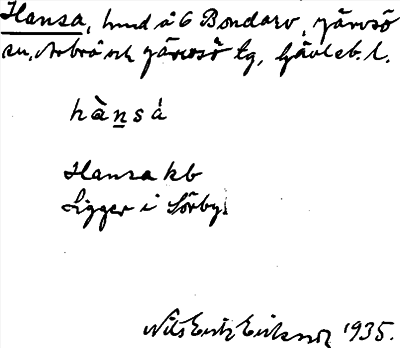 Hansa, hmd å 6 Bondarv, Järvsö
sn, Arbrå och Järvsö tg, Gävleb. l.
hànsá
Hansa kb
Ligger i Sörby.
Nils Erik Eriksson 1935.